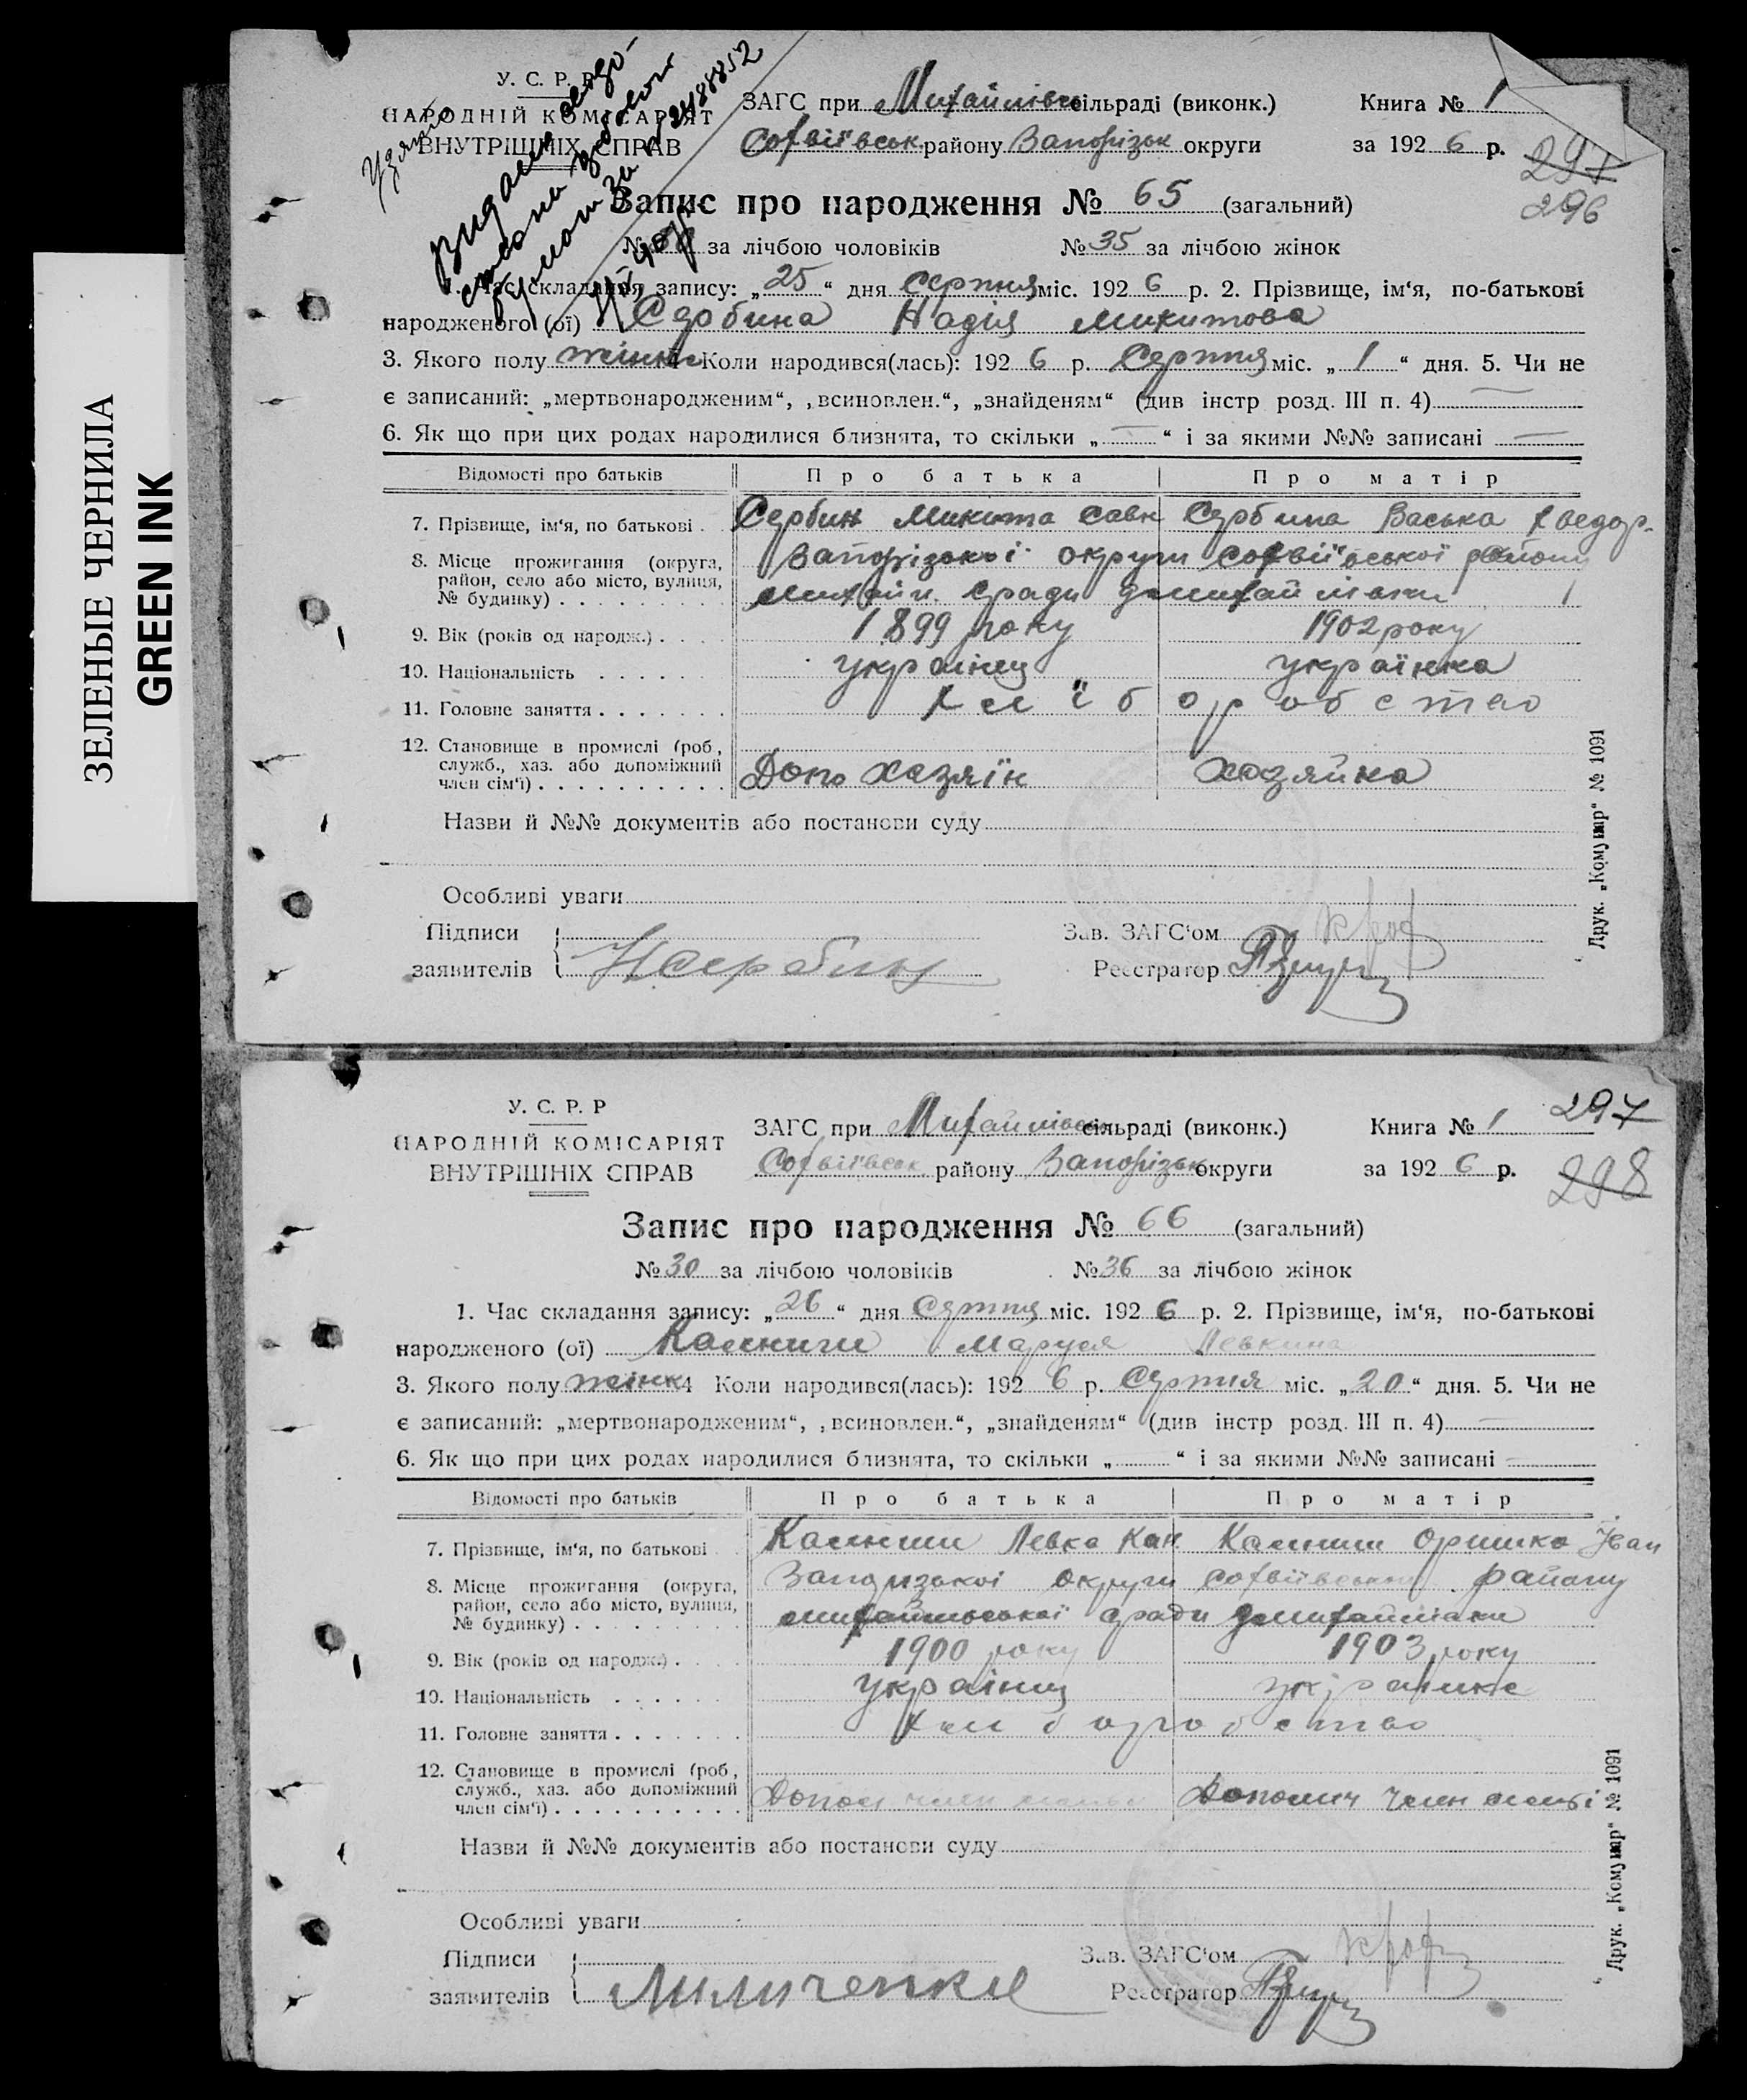 ЗЕЛЕНЫЕ ЧЕРНИЛА
GREEN INK
У. С. Р. Р
НАРОДНІЙ КОМІСАРІЯТ
ВНУТРІШНІХ СПРАВ
ЗАГС при Михайлівс сільраді (виконк.) Книга № 1
Софіївськ району Запорізьк округи за 192 6 р.
297
296
Запис про народження № 65 (загальний)
№ за лічбою чоловіків № 35 за лічбою жінок
1. Час складання запису: „ 25 “ дня Серпня міс. 192 6 р. 2. Прізвище, ім‘я, по-батькові
народженого (ої) Сербина Надія Микитова
3. Якого полу жіноч Коли народився(лась): 192 6 р. Серпня міс. „ 1 “ дня. 5. Чи не
є записаний: „мертвонародженим“, „всиновлен.“, „знайденям“ (див інстр розд. III п. 4)
6. Як що при цих родах народилися близнята, то скільки „ “ і за якими №№ записані
Відомості про батьків Про батька Про матір
7. Прізвище, ім‘я, по батькові Сербин Микита Савк Сербина Васька Хведор.
8. Місце прожигання (округа, район, село або місто, вулиця, № будинку) Запорізької округи Софвіївської району
Михайл. Сради Михайлівки
9. Вік (років од народж.) 1899 року 1902 року
10. Національність українец українка
11. Головне заняття Хлїборобство
12. Становище в промислі (роб, служб., хаз. або допоміжний член сім‘ї) Допо хазяїн хозяйка
Назви й №№ документів або постанови суду
Особливі уваги
Підписи
заявителів Н Сербин
Зав. ЗАГС‘ом
Реєстратор
Друк. „Комунар“ № 1091
У. С. Р. Р
НАРОДНІЙ КОМІСАРІЯТ
ВНУТРІШНІХ СПРАВ
ЗАГС при Михайлівсь сільраді (виконк.) Книга № 1
Софвіївськ району Запорізьк округи за 192 6 р.
297
298
Запис про народження № 66 (загальний)
№ 30 за лічбою чоловіків № 36 за лічбою жінок
1. Час складання запису: „ 26 “ дня Серпня міс. 192 6 р. 2. Прізвище, ім‘я, по-батькові
народженого (ої) Маруся Левкина
3. Якого полу жінк 4 Коли народився(лась): 192 6 р. Серпня міс. „ 20 “ дня. 5. Чи не
є записаний: „мертвонародженим“, „всиновлен.“, „знайденям“ (див інстр розд. III п. 4)
6. Як що при цих родах народилися близнята, то скільки „ “ і за якими №№ записані
Відомості про батьків Про батька Про матір
7. Прізвище, ім‘я, по батькові Левко Оришка Іван
8. Місце прожигання (округа, район, село або місто, вулиця, № будинку) Запоризької округи софвіївської району
михайлівської сради
9. Вік (років од народж.) 1900 року 1903 року
10. Національність українец українка
11. Головне заняття Хлиборобство
12. Становище в промислі (роб, служб., хаз. або допоміжний член сім‘ї) Допом член Допомич член
Назви й №№ документів або постанови суду
Особливі уваги
Підписи
заявителів
Зав. ЗАГС‘ом
Реєстратор
Друк. „Комунар“ № 1091